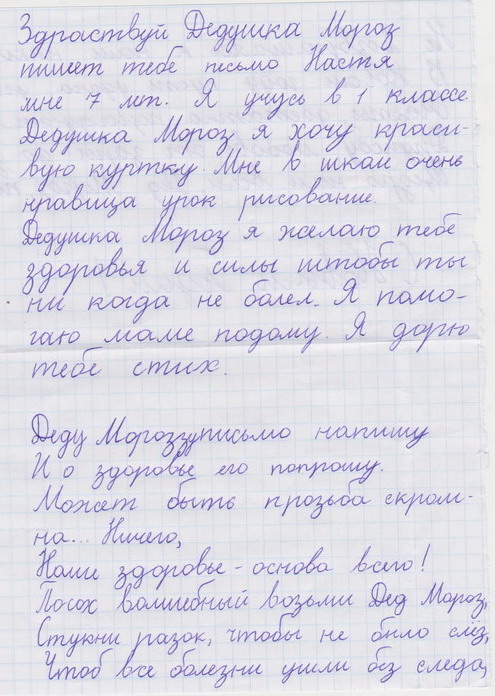 Здраствуй Дедушка Мороз
пишет тебе письмо Настя
мне 7 лет. Я учусь в 1 классе.
Дедушка Мороз я хочу краси-
вую куртку. Мне в шкаи очень
нравица урок рисование.
Дедушка Мороз я желаю тебе
здоровья и силы штобы ты
ни когда не болел. Я помо-
гаю маме подому. Я дарю
тебе стих.
Деду Морозу письмо напишу
И о здоровье его попрошу.
Может быть прозьба скром-
на... Ничего,
Наше здоровье - основа всего!
Посох волшебный возьми Дед Мороз,
Стукни разок, чтобы не было слёз,
Чтоб все болезни ушли без следа,